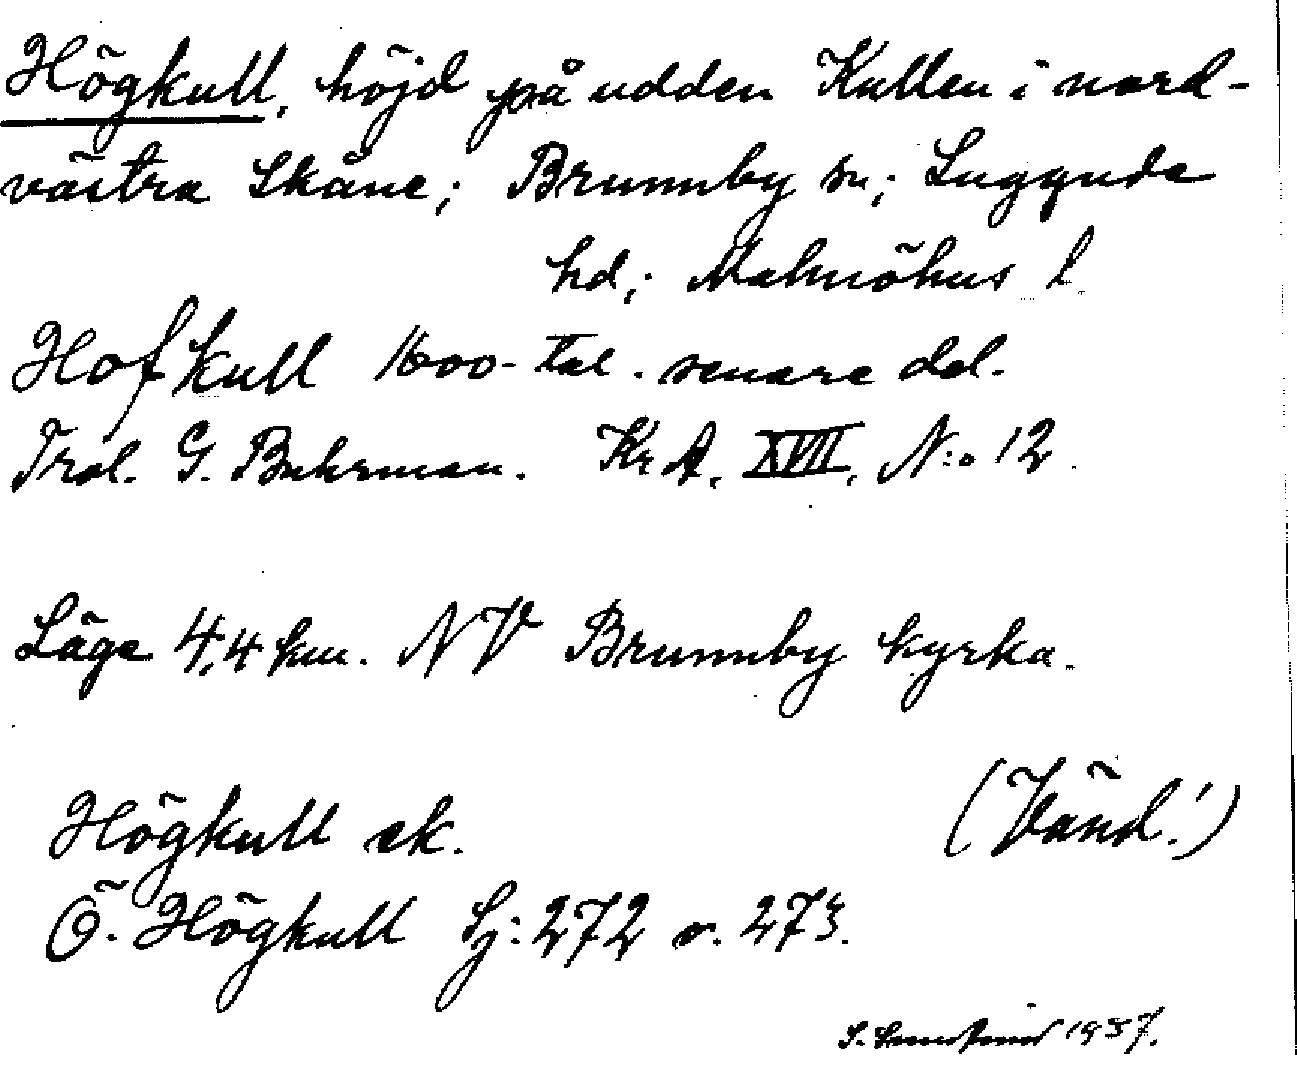 Högkull, höjd på udden Kullen i nord-
västra Skåne; Brunnby sn; Luggude
hd; Malmöhus l
Hofkull 1600-tal. senare del.
Trol. G. Buhrman. Kr A. XVII. N:o 12.
Läge 4,4 km. NV Brunnby kyrka.
(Vänd!)
Högkull ek.
Ö. Högkull Sj: 272 o. 273.
S. 1937.